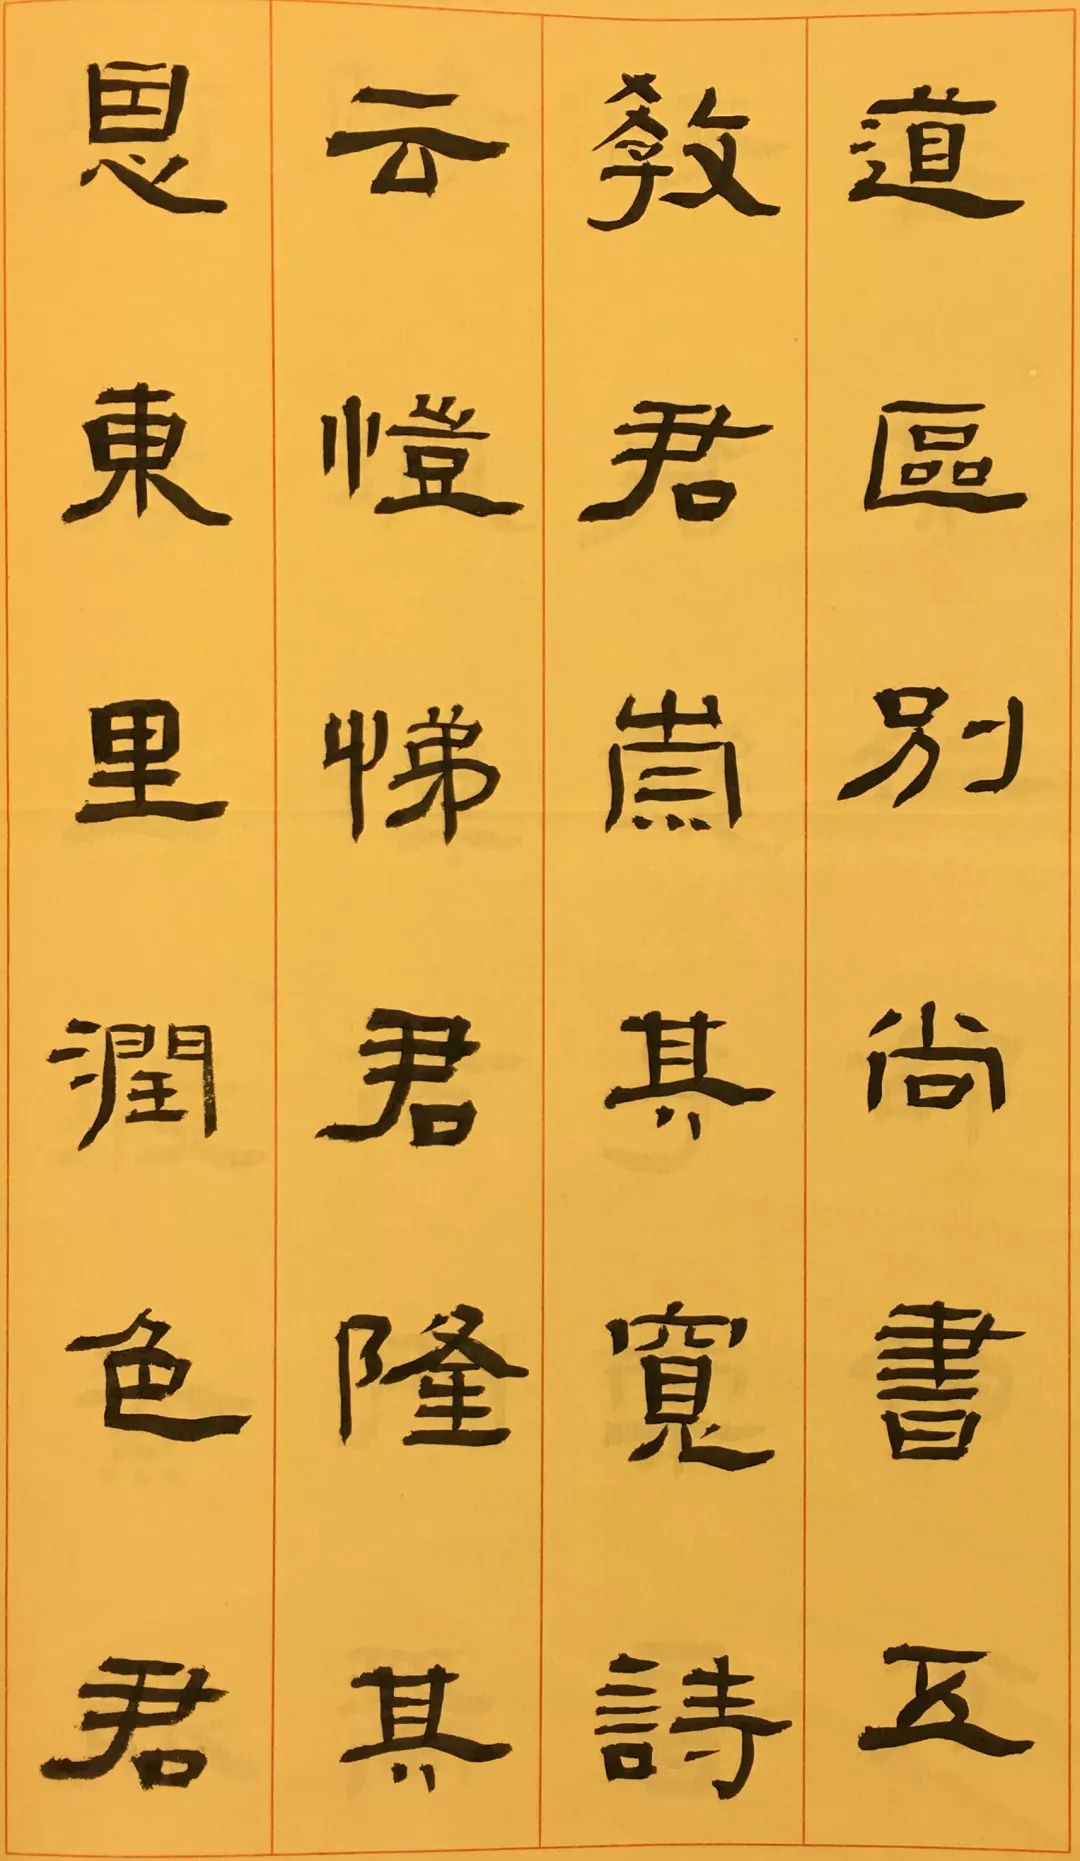 道區別尚書五
教君崇其寬詩
云愷悌君隆其
恩東里潤色君